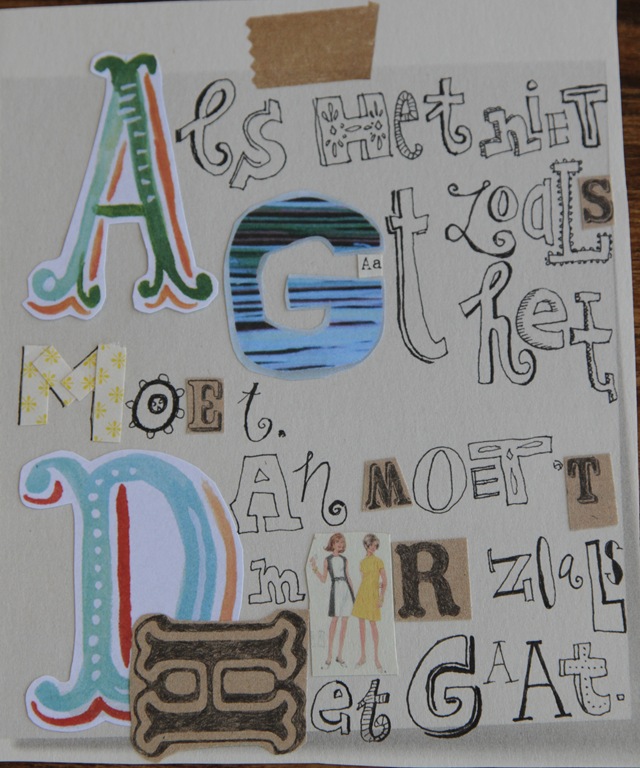 Als Het niET
GAat ZoaLS
het
MOEt.
DAn MOET 'T
m R ZOaLS
Het GAAt.